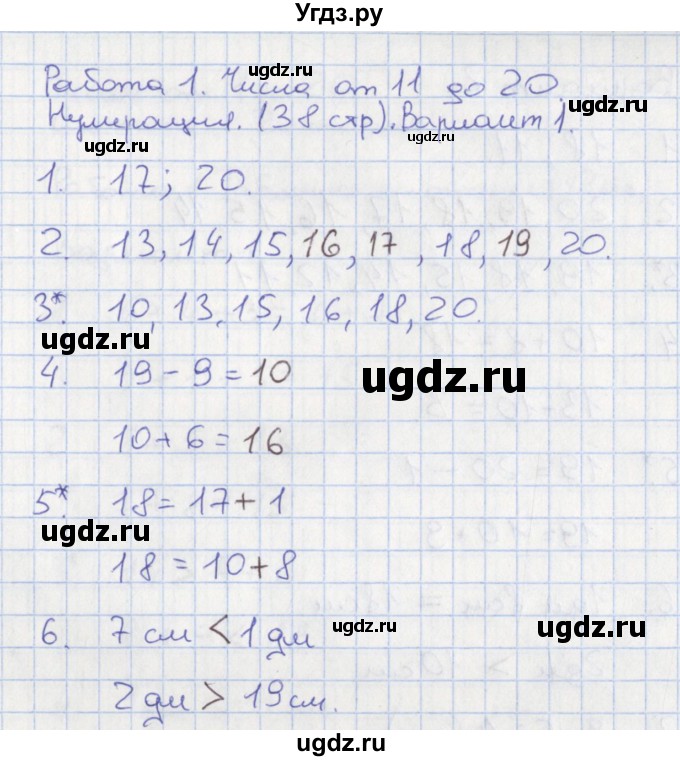 Угдз.ру
Работа 1. Числа от 11 до 20.
ugdz.ru
Нумерация. (38 стр). Вариант 1.
ugdz.ru ugdz.ru ugdz.ru
1. 17; 20.
2. 13, 14, 15, 16, 17, 18, 19, 20.
3*. 10, 13, 15, 16, 18, 20.
ugdz.ru
4. 19 - 9 = 10
ugdz.ru
10 + 6 = 16
5*. 18 = 17 + 1
ugdz.ru
18 = 10 + 8
6. 7 см < 1 дм
ugdz.ru ugdz.ru
2 дм > 19 см.
ugdz.ru